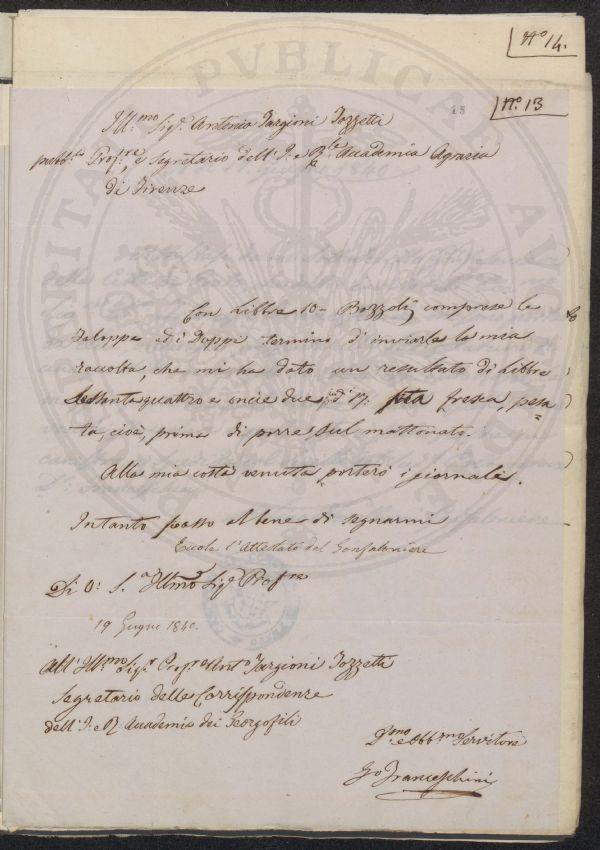 Nº 14.
Nº 13
13
Ill.mo Sig.r Antonio Targioni Tozzetti
pubb.co Prof.re, e Segretario dell'I. e R.le Accademia Agraria
di Firenze
Con Libbre 10 - Bozzoli, comprese le
Faloppe ed i Doppi termino d'inviarle la mia
raccolta, che mi ha dato un resultato di Libbre
Sessantaquattro e oncie due di fresca, pesa=
ta, cioè, prima di porre sul mattonato.
Alla mia costà venuta porterò i giornali.
Intanto passo al bene di segnarmi
l'Attestato del Gonfaloniere
Di V: S.a Ill.mo Sig.r Prof.re
19 Giugno 1840.
All'Ill.mo Sig.r Prof.re Ant.o Targioni Tozzetti
Segretario delle Corrispondenze
dell'I. e R. Accademia dei Georgofili
D.mo e Obb.mo Servitore
G.o Franceschini